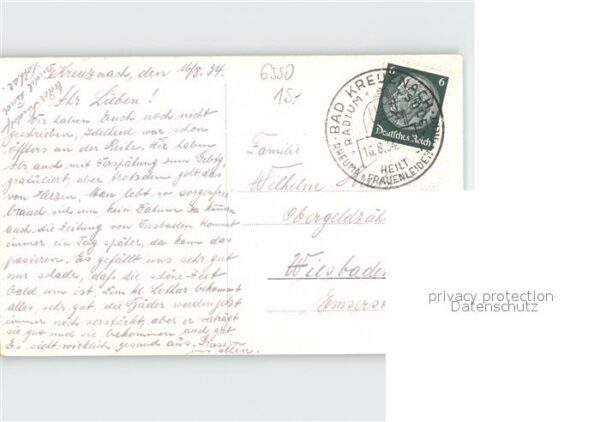 Kreuznach, den 16/8. 34.
Ihr Lieben!
Wir haben Euch noch nicht
geschrieben, Adelheid war schon
öfters an der Reihe. Wir haben
Ihr auch mit Verspätung zum Gebtg.
gratuliert, aber trotzdem geht das
von Herzen. Man lebt so sorgenfrei
braucht sich um kein Datum zu
auch die Zeitung von Wiesbaden kommt
immer ein Tag später, da kann das
passieren. Es gefällt uns sehr gut
nur schade, daß die schöne Zeit
bald um ist. Dem kl. Lothar bekommt
alles sehr gut, die Bäder werden jetzt
immer noch verstärkt, aber er verträgt
sie gut und sie bekommen auch gut
Es sieht wirklich gesund aus.
von allen.
6550
15.-
BAD KREUZNACH
RADIUM
16.8.34
HEILT
RHEUMA FRAUENLEIDEN
6
Deutsches Reich
Familie
Wilhelm
Wiesbaden
Emserst
privacy protection
Datenschutz